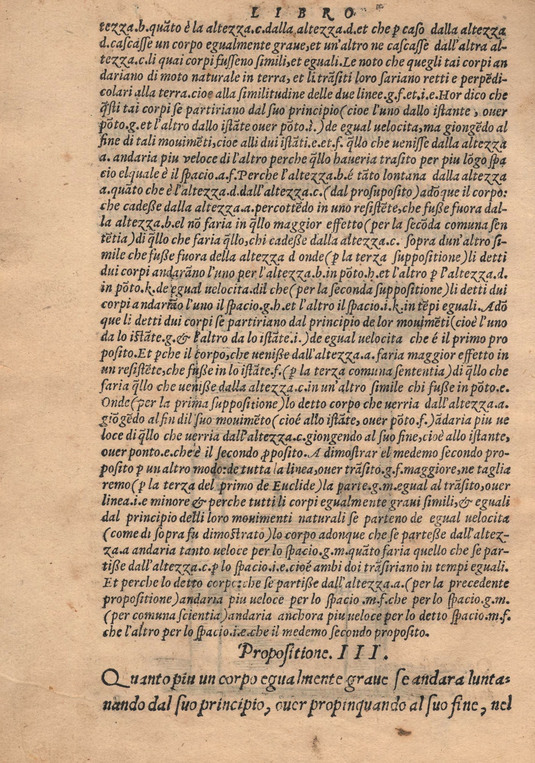 LIBRO
tezza.b.quãto è la altezza.c.dalla altezza.d.et che p caso dalla altezza
d.cascasse un corpo egualmente graue,et un'altro ne cascasse dall'altra al-
tezza.c.li quai corpi fusseno simili,et eguali.Le noto che quegli tai corpi an
dariano di moto naturale in terra,et li trãsiti loro sariano retti e perpẽdi-
colari alla terra.cioe alla similitudine delle due linee.g.f.et.i.e.Hor dico che
q̃sti tai corpi se partiriano dal suo principio(cioe l'uno dallo istante, ouer
põto.g.et l'altro dallo istãte ouer põto.i.)de egual uelocita,ma giongẽdo al
fine di tali mouimẽti,cioe alli dui istãti.e.et.f. q̃llo che uenisse dalla altezza
a. andaria piu veloce di l'altro perche q̃llo haueria trãsito per piu lõgo spa
cio elquale è il spacio.a.f.Perche l'altezza.b.é tãto lontana dalla altezza
a.quãto che è l'altezza.d.dall'altezza.c.(dal prosuposito)adõque il corpo:
che cadesse dalla altezza.a.percottẽdo in uno resistẽte,che fusse fuora dal-
la altezza.b.el nõ faria in q̃llo maggior effetto(per la secõda comuna sen
tẽtia)di q̃llo che faria q̃llo,chi cadesse dalla altezza.c. sopra dun'altro si-
mile che fusse fuora della altezza d onde(p la terza suppositione)li detti
dui corpi andarãno l'uno per l'altezza.b.in põto.h.et l'altro p l'altezza.d.
in põto.k.de egual uelocita.dil che(per la seconda suppositione)li detti dui
corpi andarãno l'uno il spacio.g.h.et l'altro il spacio.i.k.in tẽpi eguali.Adõ
que li detti dui corpi se partiriano dal principio de lor mouimẽti(cioè l'uno
da lo istãte.g.& l'altro da lo istãte.i.)de egual uelocita che é il primo pro
posito.Et pche il corpo,che uenisse dall'altezza.a.faria maggior effetto in
un resistẽte,che fusse in lo istãte.f.(p la terza comuna sententia)di q̃llo che
faria q̃llo che uenisse dalla altezza.c.in un'altro simile chi fusse in põto.e.
Onde(per la prima suppositione)lo detto corpo che uerria dall'altezza.a.
giõgẽdo al fin dil suo mouimẽto(cioé allo istãte, ouer põto.f.)ãdaria piu ue
loce di q̃llo che uerria dall'altezza.c.giongendo al suo fine,cioè allo istante,
ouer ponto.e.che è il secondo p̱posito.A dimostrar el medemo secondo pro-
posito p un altro modo:de tutta la linea,ouer trãsito.g.f.maggiore,ne taglia
remo(p la terza del primo de Euclide)la parte.g.m.egual al trãsito,ouer
linea.i.e minore & perche tutti li corpi egualmente graui simili,& eguali
dal principio delli loro mouimenti naturali se parteno de egual uelocita
(come di sopra fu dimostrato)lo corpo adonque che se partesse dall'altez-
za.a andaria tanto veloce per lo spacio.g.m.quãto faria quello che se par-
tisse dall'altezza.c.p lo spacio.i.e.cioé ambi doi trãsiriano in tempi eguali.
Et perche lo detto corpo:che se partisse dall'altezza.a.(per la precedente
propositione)andaria piu ueloce per lo spacio .m.f.che per lo spacio.g.m.
(per comuna scientia)andaria anchora piu veloce per lo detto spacio.m.f.
che l'altro per lo spacio.i.e.che il medemo secondo proposito.
Propositione. III.
Quanto piu un corpo egualmente graue se andara lunta-
nando dal suo principio, ouer propinquando al suo fine, nel